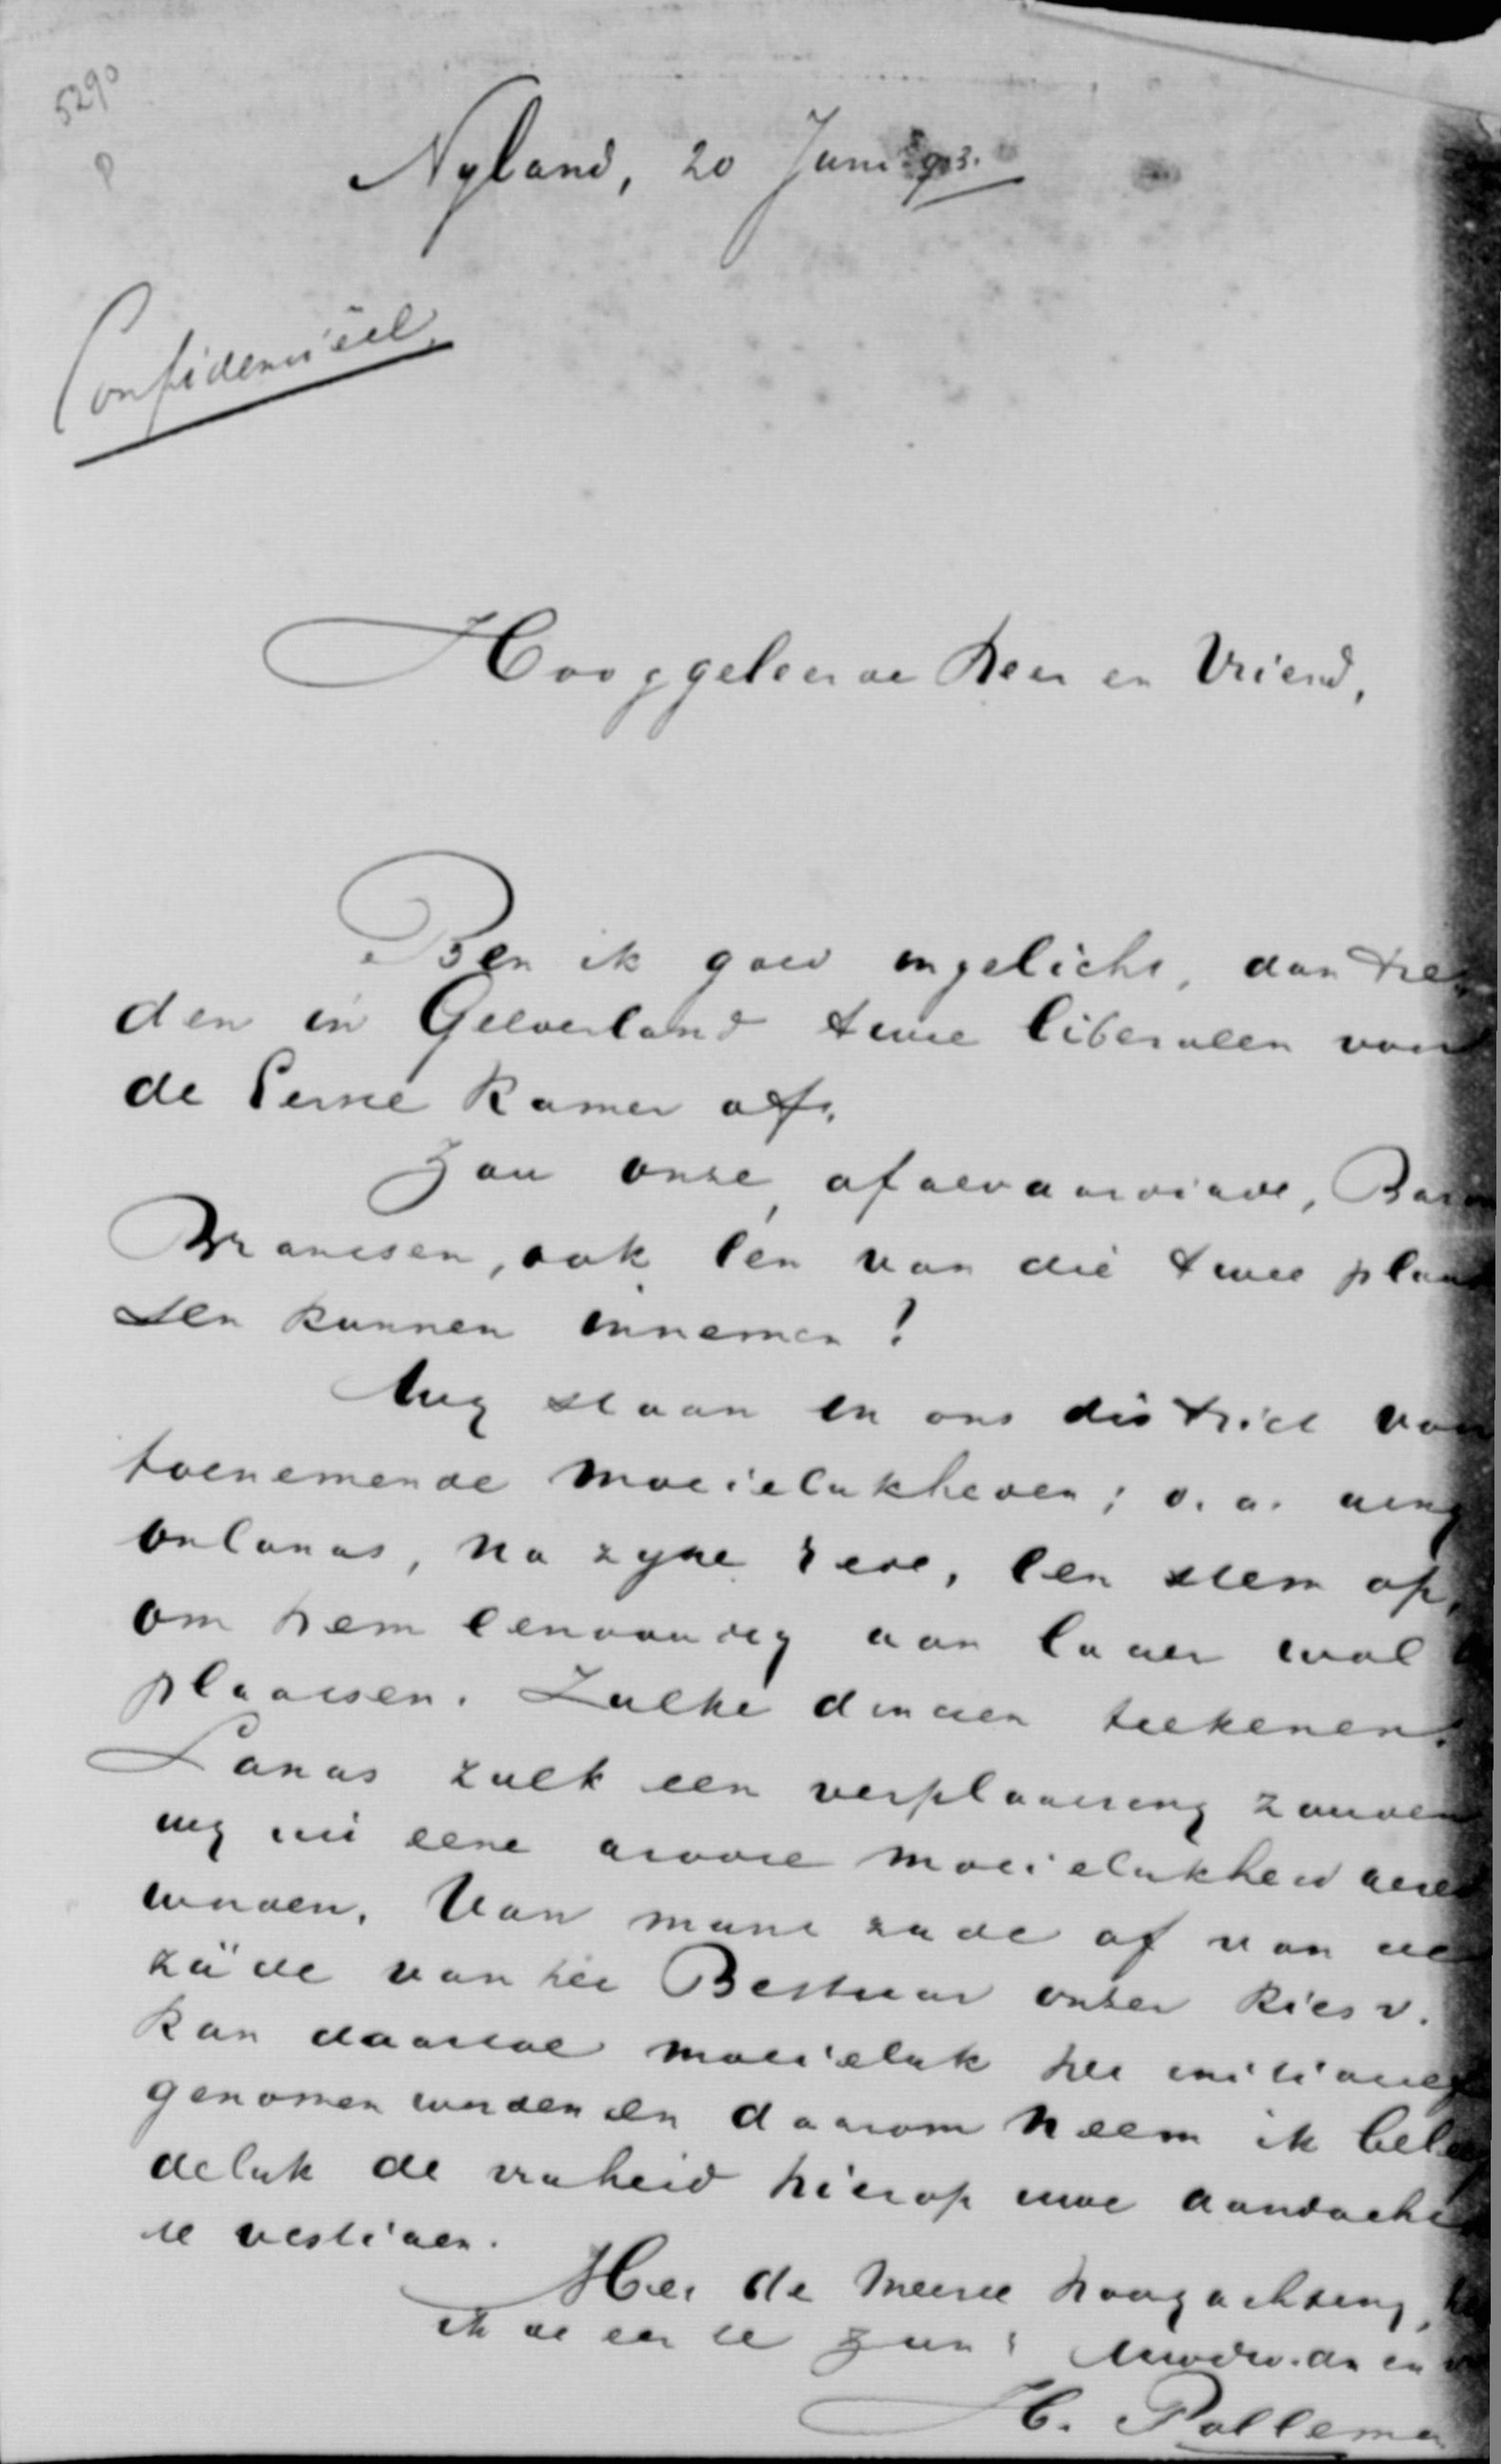 5290
Nyland, 20 Juni 903.
Confidentiëel.
Hooggeleerde Heer en Vriend,
Ben ik goed ingelicht, dan tre-
den in Gelderland twee liberalen voor
de Eerste Kamer af.
Zou onze afgevaardigde, Baron
Brantsen, ook één van die twee plaat-
sen kunnen innemen?
staan in ons district van
toenemende moeielijkheden; o. a. ging
onlangs, na zijne rede, een stem op,
om hem eenvoudig aan lager wal
plaatsen. Zulke dingen teekenen.
Langs zulk een verplaatsing zouden
wij uit eene groote moeielijkheid gered
worden. Van mijne zijde of van de
zijde van het Bestuur onzer Kiesv.
kan daartoe moeielijk het initiatief
genomen worden en daarom neem ik beleef-
delijk de vrijheid hierop uwe aandacht
te vestigen.
Met de meeste hoogachting,
ik de eer te zijn: Uwdw. dn en
H. Pollema